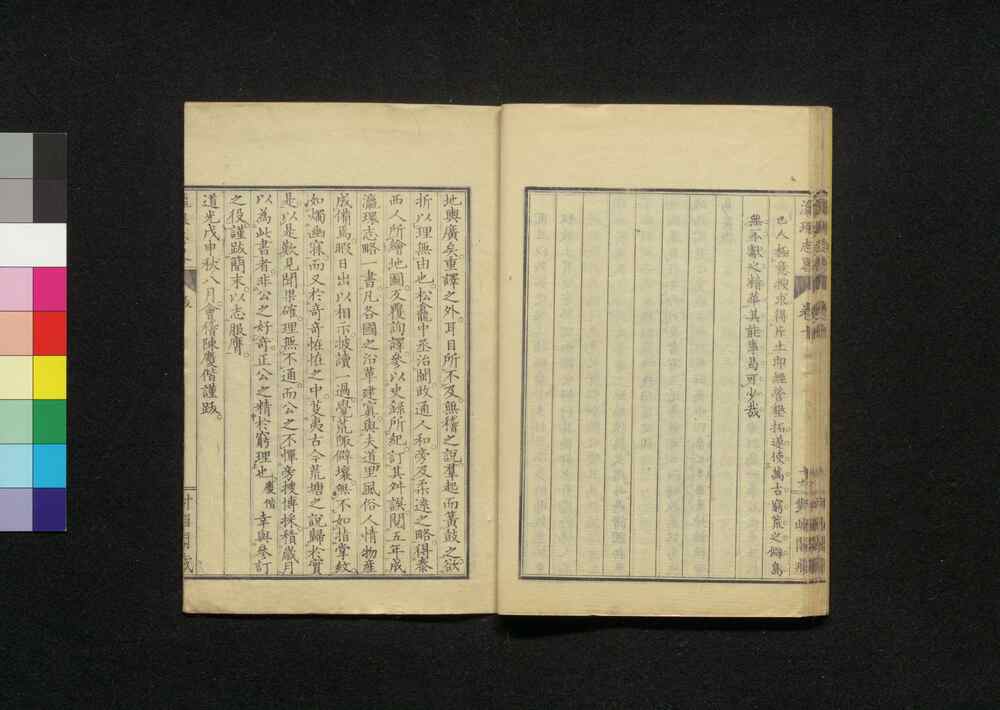 巴人極意搜求得片土即經營墾拓遂使萬古窮荒之僻島
無不獻之精華其能事曷可少哉
瀛環志畧 卷十
地輿廣矣重譯之外耳目所不及無稽之說羣起而簧鼓之欲
折以理無由也松龕中丞治閩政通人和旁及柔遠之略得泰
西人所繪地圖反覆詢譯參以史錄所紀訂其舛誤閱五年成
瀛環志略一書凡各國之沿革建寘與夫道里風俗人情物產
成備焉暇日出以相示披讀一過覺荒陬僻壤無不如指掌紋
如燭幽寐而又於奇奇恠恠之中芟夷古今荒塘之說歸於實
是以是歎見聞果確理無不通而公之不憚旁搜博採積歲月
以為此書者非公之好奇正公之精於窮理也慶偕幸與參訂
之役謹跋簡末以志服膺
道光戊申秋八月會稽陳慶偕謹跋